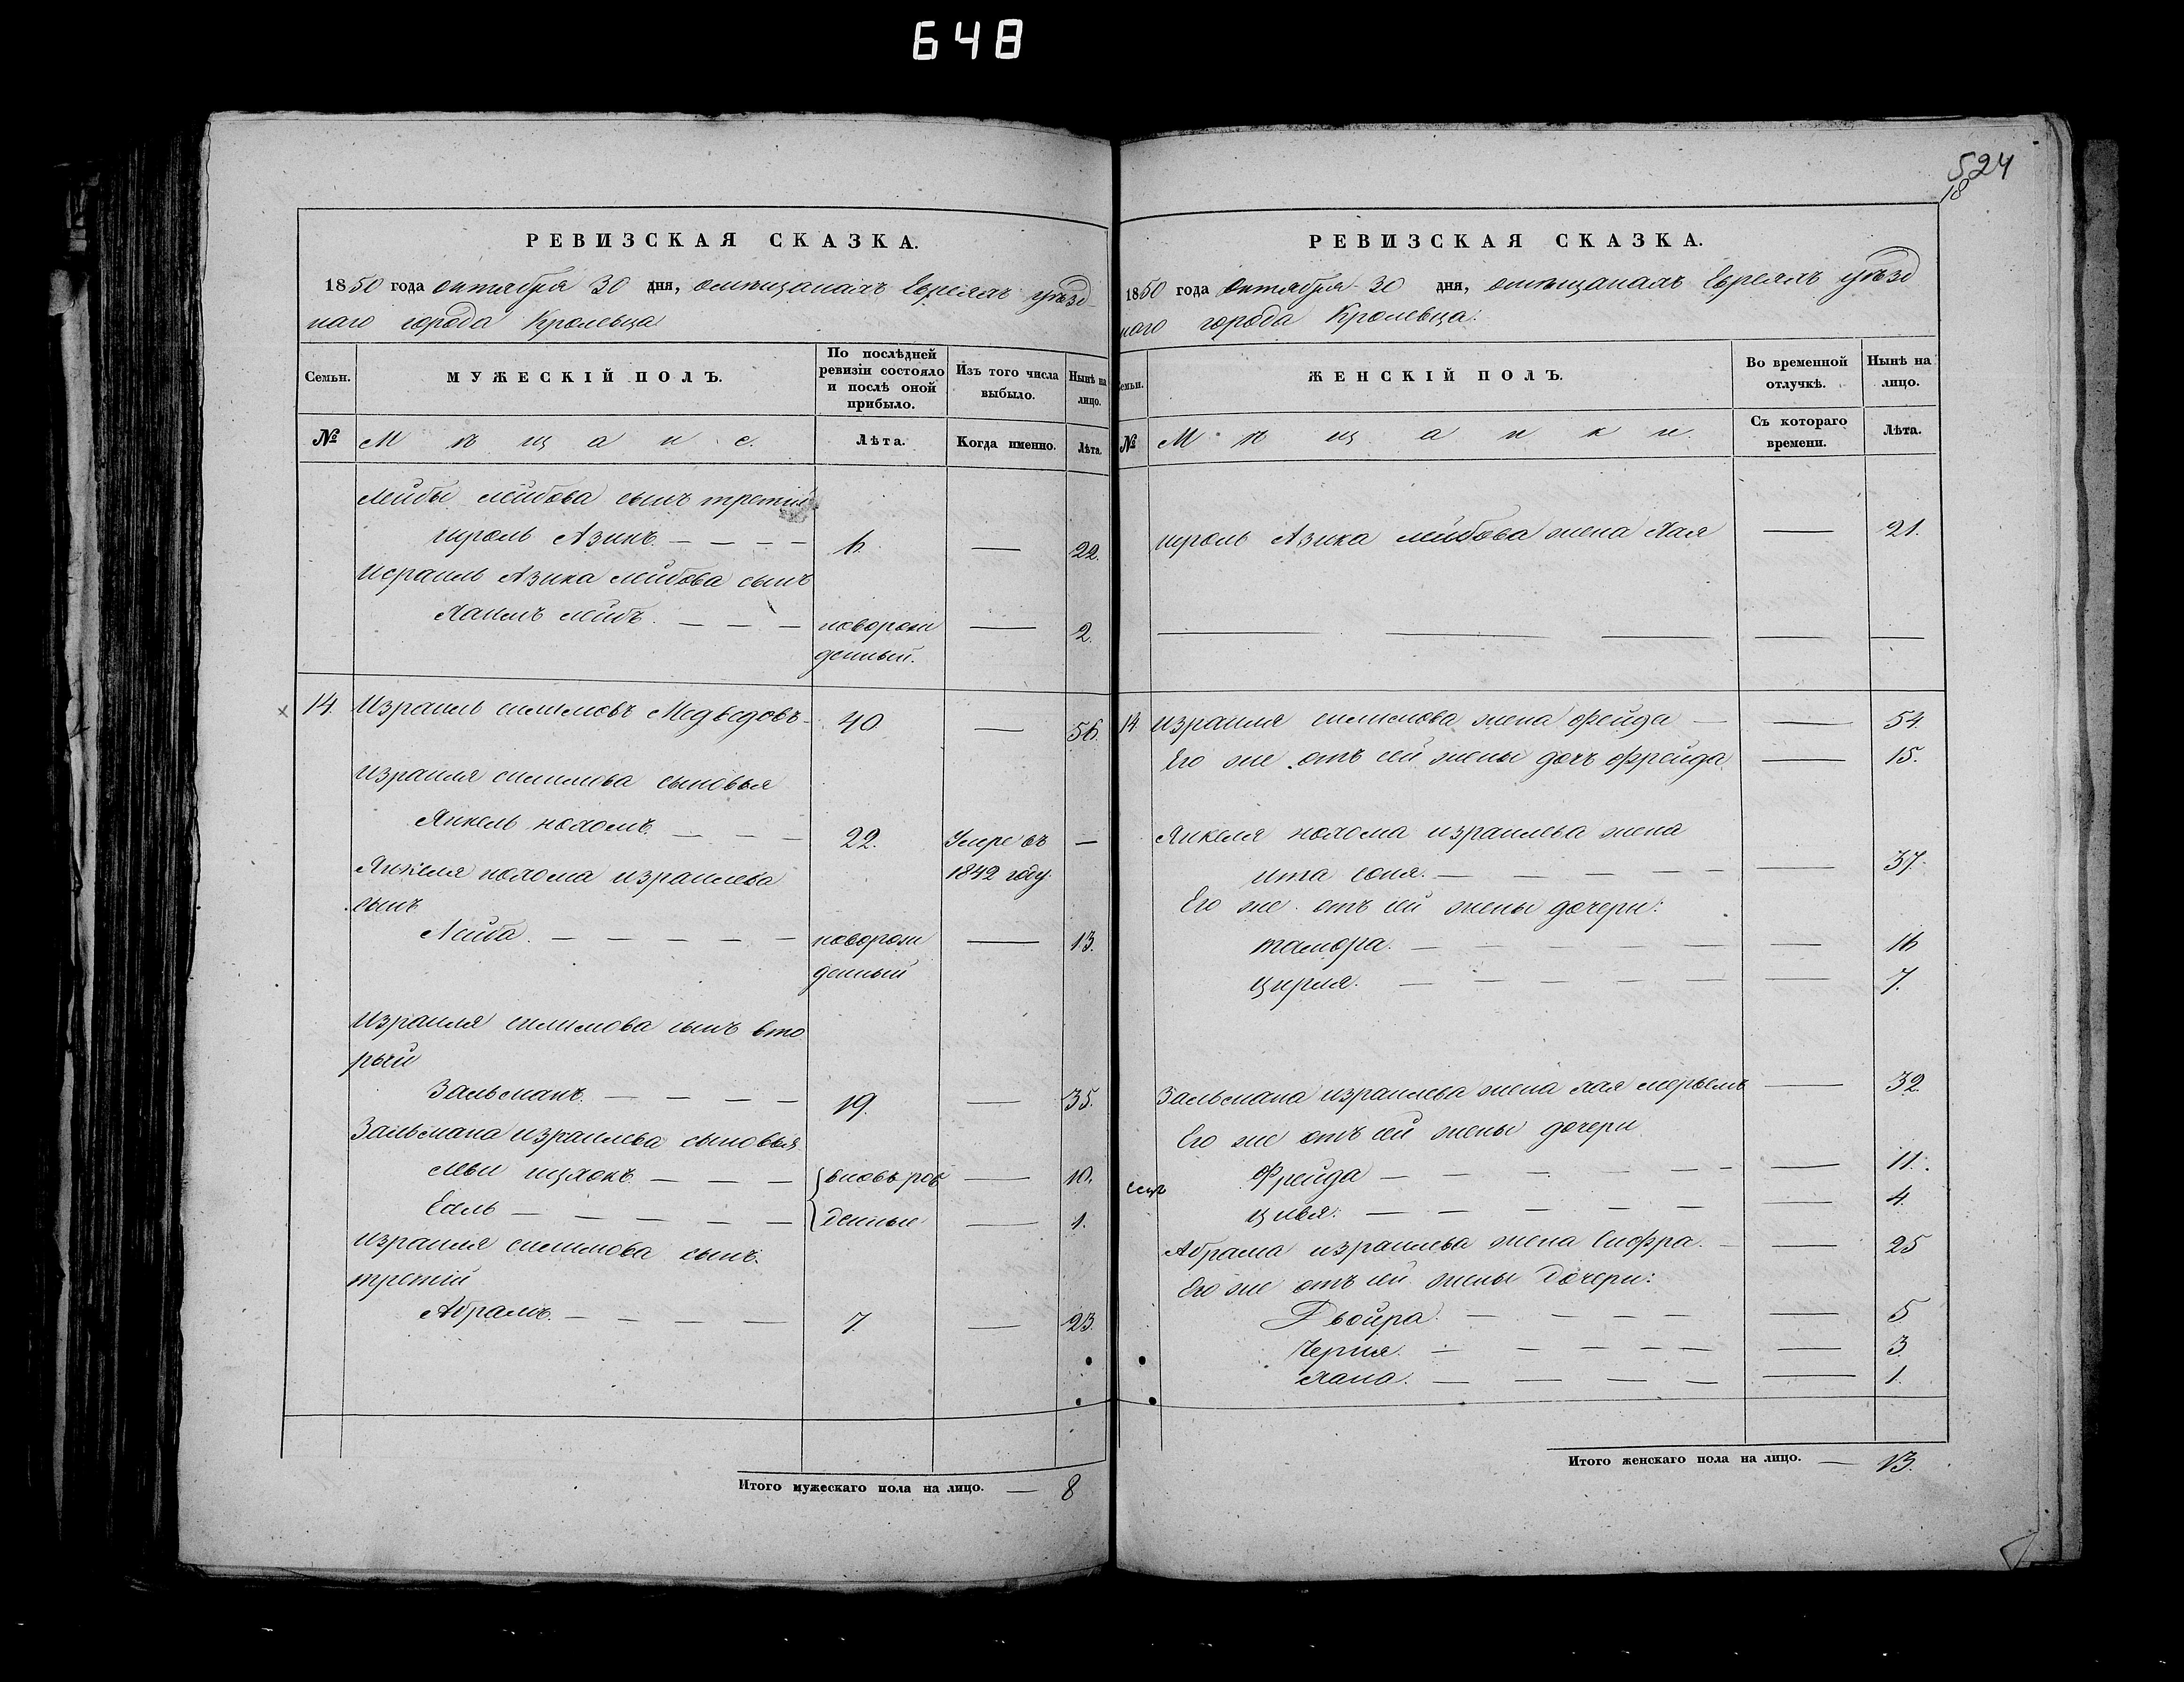 648
524
18
РЕВИЗСКАЯ СКАЗКА.
1850 года октября 30 дня, о мѣщанахъ Евреяхъ уѣзд-
наго города Кролевца
Семьи.
МУЖЕСКІЙ ПОЛЪ.
По послѣдней ревизіи состояло и послѣ оной прибыло.
Изъ того числа выбыло.
Нынѣ на лицо.
№
Мѣщане.
Лѣта.
Когда именно.
Лѣта.
Лейбы лейбова сынъ третій
Исроль Азикъ. — — — — 6 — 22.
Израиль Азика лейбова сынъ
Хаимъ лейбъ. — — — новорож — 2.
денный.
14. Израиль симмовъ Медведовъ 40 — 56.
Израиля симмова сыновья
Янкель нохомъ. — — — 22. Умре въ —
Янкеля нохома израилева 1842 году.
сынъ
Лейба. — — — — — новорож — 13.
денный
Израиля симмова сынъ вто
рый
Зальманъ. — — — — 19. — 35.
Зальмана израилева сыновья
Меи ицхокъ — — — вновь рож — 10.
Есель — — — — — денные — 1.
Израиля симмова сынъ.
третій
Абрамъ. — — — — 7. — 23.
Итого мужескаго пола на лицо. — 8
РЕВИЗСКАЯ СКАЗКА.
1850 года Октября 30 дня, о мѣщанахъ Евреяхъ уѣзд
наго города Кролевца.
Семьи.
ЖЕНСКІЙ ПОЛЪ.
Во временной отлучкѣ.
Нынѣ на лицо.
№
Мѣщанки.
Съ котораго времени.
Лѣта.
Исроль Азика лейбова жена Хая — 21.
— — — — —
14 Израиля симмова жена фейга — — 54
Его же отъ сей жены дочь фрейда — 15.
Янкеля нохома израилева жена
ита соня. — — — — — — 37.
Его же отъ сей жены дочери:
тамора. — — — — — — 16
цирля. — — — — — — — 7.
Зальмана израилева жена хая мерьемъ — 32
Его же отъ сей жены дочери
Фрейда — — — — — — — 11.
цивя: — — — — — — 4.
Абрама израилева жена Сифра. — — 25
Его же отъ сей жены дочери:
Двойра. — — — — — 5
Черня. — — — — — — 3.
Хана. — — — — — 1.
Итого женскаго пола на лицо. — 13.